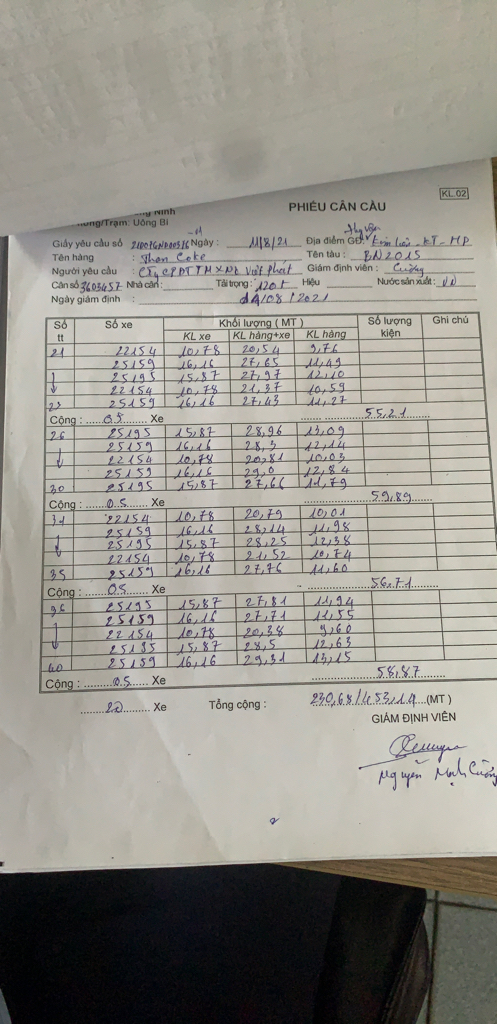 KL.02
PHIẾU CÂN CẦU
Ninh
Trạm: Uông Bí
Giấy yêu cầu số Ngày : 11/8/21 Địa điểm GĐ:
Tên hàng : Than Coke Tên tàu : BN2015
Người yêu cầu : CTy CPĐT TM XNK Việt Phát Giám định viên : Cường
Cân số 3603457 Nhà cân : Tải trọng : 120t Hiệu : Nước sản xuất : VN
Ngày giám định : /08/2021
Số tt Số xe Khối lượng ( MT ) Số lượng kiện Ghi chú
KL xe KL hàng+xe KL hàng
21 22154 10,78 20,54 9,76
25159 16,16 27,65 11,49
25195 15,87 27,97 12,10
22154 10,78 21,37 10,59
25 25159 16,16 27,43 11,27
Cộng : 05 Xe 55,21
26 25195 15,87 28,96 13,09
25159 16,16 28,3 12,14
22154 10,78 20,81 10,03
25159 16,16 29,0 12,84
30 25195 15,87 27,66 11,79
Cộng : 05 Xe 59,89
31 22154 10,78 20,79 10,01
25159 16,16 28,14 11,98
25195 15,87 28,25 12,38
22154 10,78 21,52 10,74
35 25159 16,16 27,76 11,60
Cộng : 05 Xe 56,71
36 25195 15,87 27,81 11,94
25159 16,16 27,71 11,55
22154 10,78 20,38 9,60
25195 15,87 28,5 12,63
40 25159 16,16 29,31 13,15
Cộng : 05 Xe 58,87
20 Xe Tổng cộng : 230,68/453,19 (MT )
GIÁM ĐỊNH VIÊN
Nguyễn Mạnh Cường